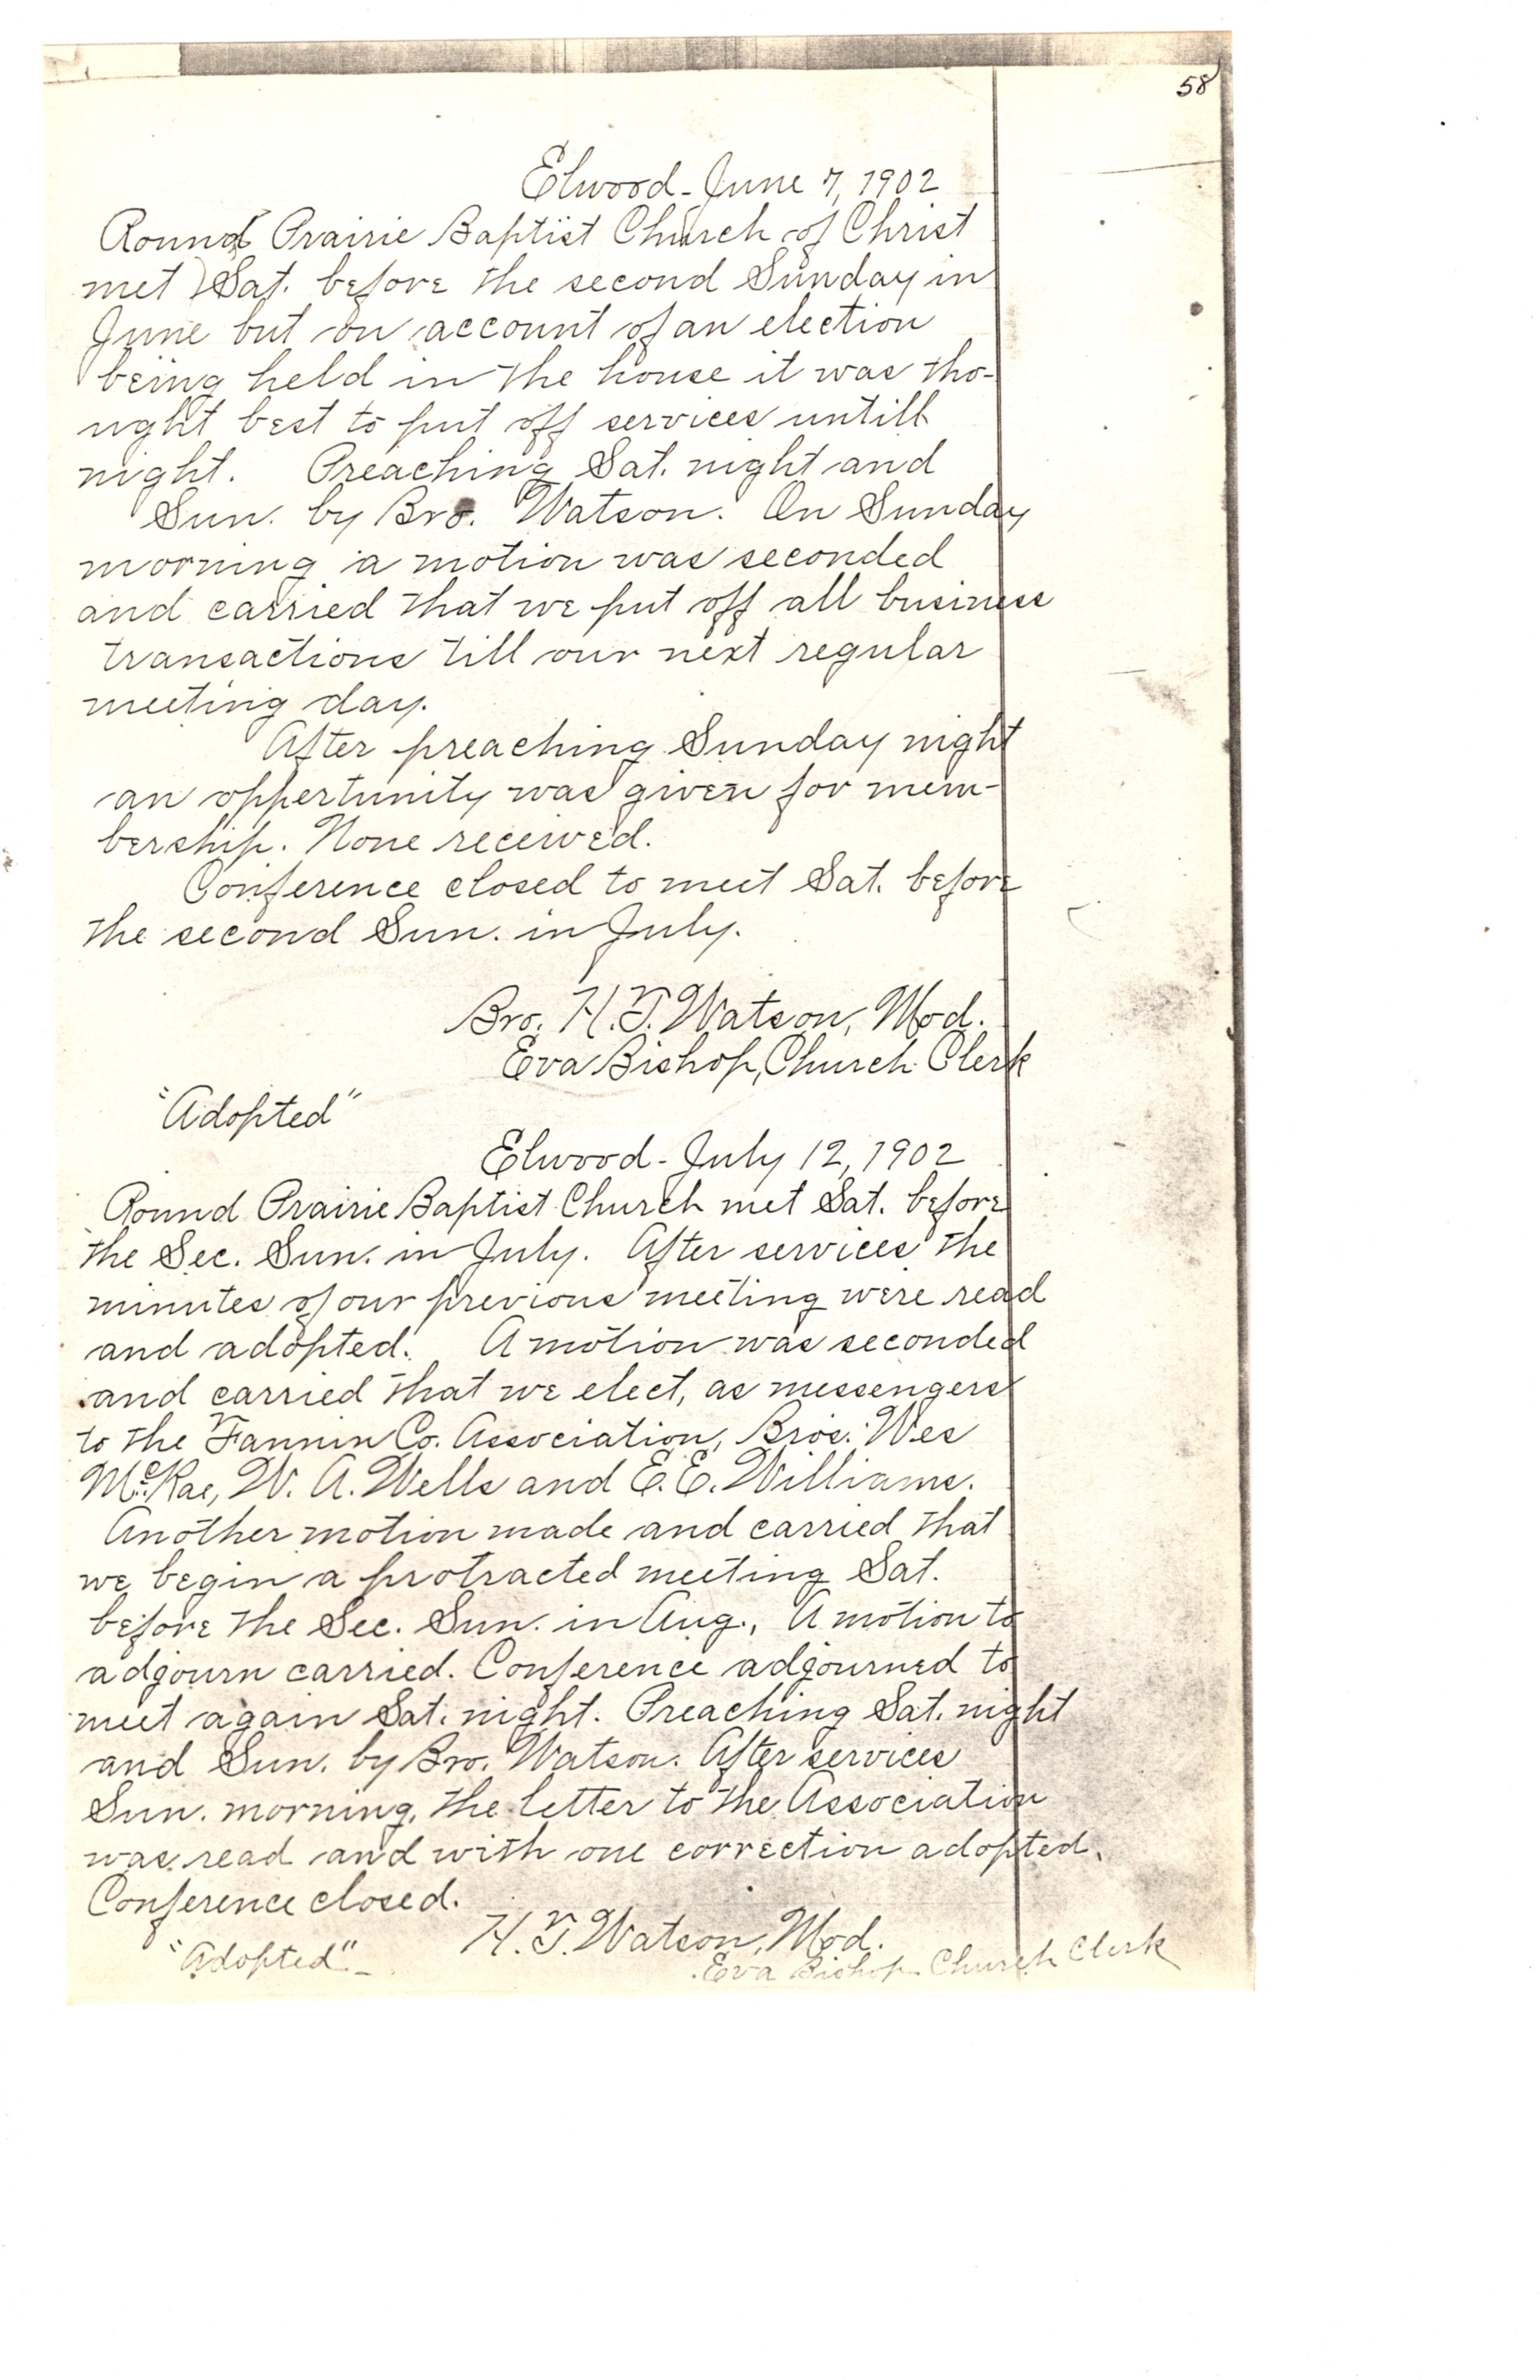 58
Elwood - June 7, 1902
Round Prairie Baptist Church of Christ
met Sat. before the second Sunday in
June but on account of an election
being held in the house it was tho-
ught best to put off services untill
night. Preaching Sat. night and
Sun. by Bro. Watson. On Sunday
morning a motion was seconded
and carried that we put off all business
transactions till our next regular
meeting day.
After preaching Sunday night
an oppertunity was given for mem-
bership. None received.
Conference closed to meet Sat. before
the second Sun. in July.
Bro. H. T. Watson, Mod.
Eva Bishop, Church Clerk
"Adopted"
Elwood - July 12, 1902
Round Prairie Baptist Church met Sat. before
the Sec. Sun. in July. After services the
minutes of our previous meeting were read
and adopted. A motion was seconded
and carried that we elect, as messengers
to the Fannin Co. Association, Bros. Wes
McRae, W. A. Wells and E. E. Williams.
Another motion made and carried that
we begin a protracted meeting Sat.
before the Sec. Sun. in Aug., A motion to
adjourn carried. Conference adjourned to
meet again Sat. night. Preaching Sat. night
and Sun. by Bro. Watson. After services
Sun. morning, the letter to the Association
was read and with one correction adopted.
Conference closed.
H. T. Watson, Mod.
"Adopted" -
Eva Bishop Church Clerk